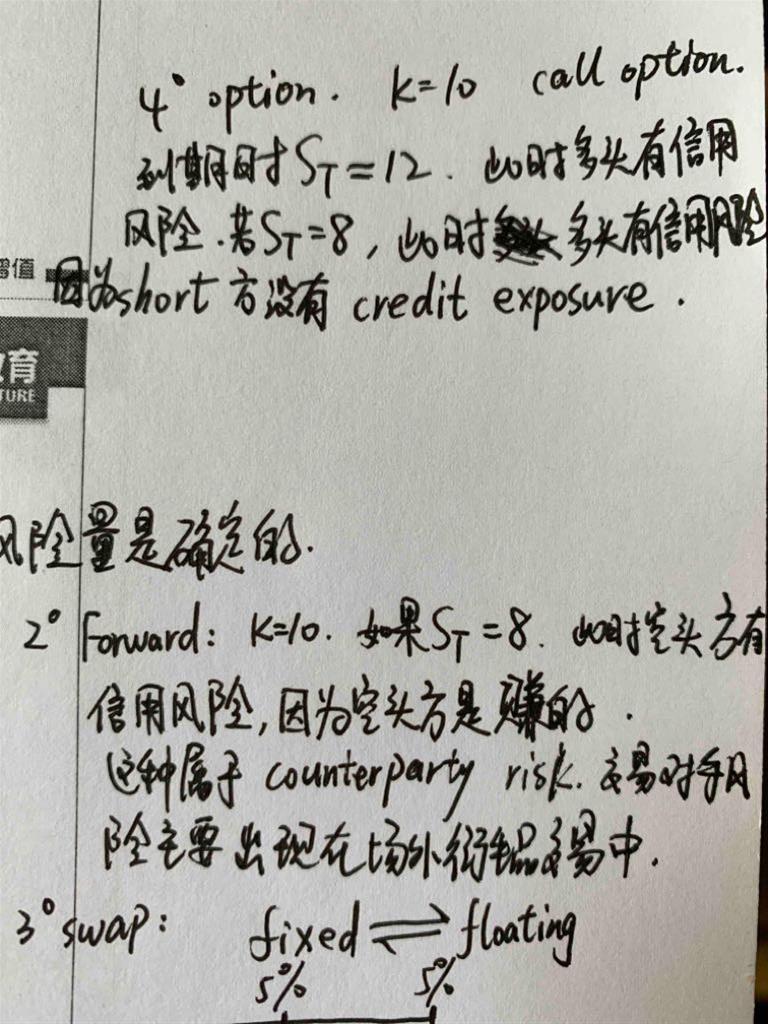 4° option. K=10 call option.
到期时 S_T=12. 此时多头有信用
风险.若S_T=8,此时多头有信用风险
因为short方没有 credit exposure.
值
育
TURE
风险量是确定的.
2° Forward: K=10. 如果S_T=8. 此时空头方有
信用风险,因为空头方是赚的.
这种属于 counterparty risk. 交易对手风
险主要出现在场外衍生品交易中.
3° swap: fixed ⇌ floating
5% 5%